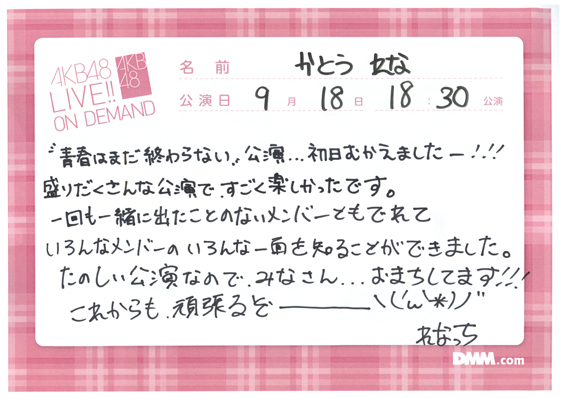 AKB48
LIVE!!
ON DEMAND
AKB
48
名前 かとう れな
公演日 9月 18日 18:30公演
"青春はまだ終わらない"公演...初日むかえましたー!!!
盛りだくさんな公演で、すごく楽しかったです。
一回も一緒に出たことのないメンバーともでれて
いろんなメンバーの いろんな一面を知ることができました。
たのしい公演なので、みなさん...おまちしてます!!!
これからも、頑張るぞ――――\(´ω`*)ノ"
れなっち
DMM.com